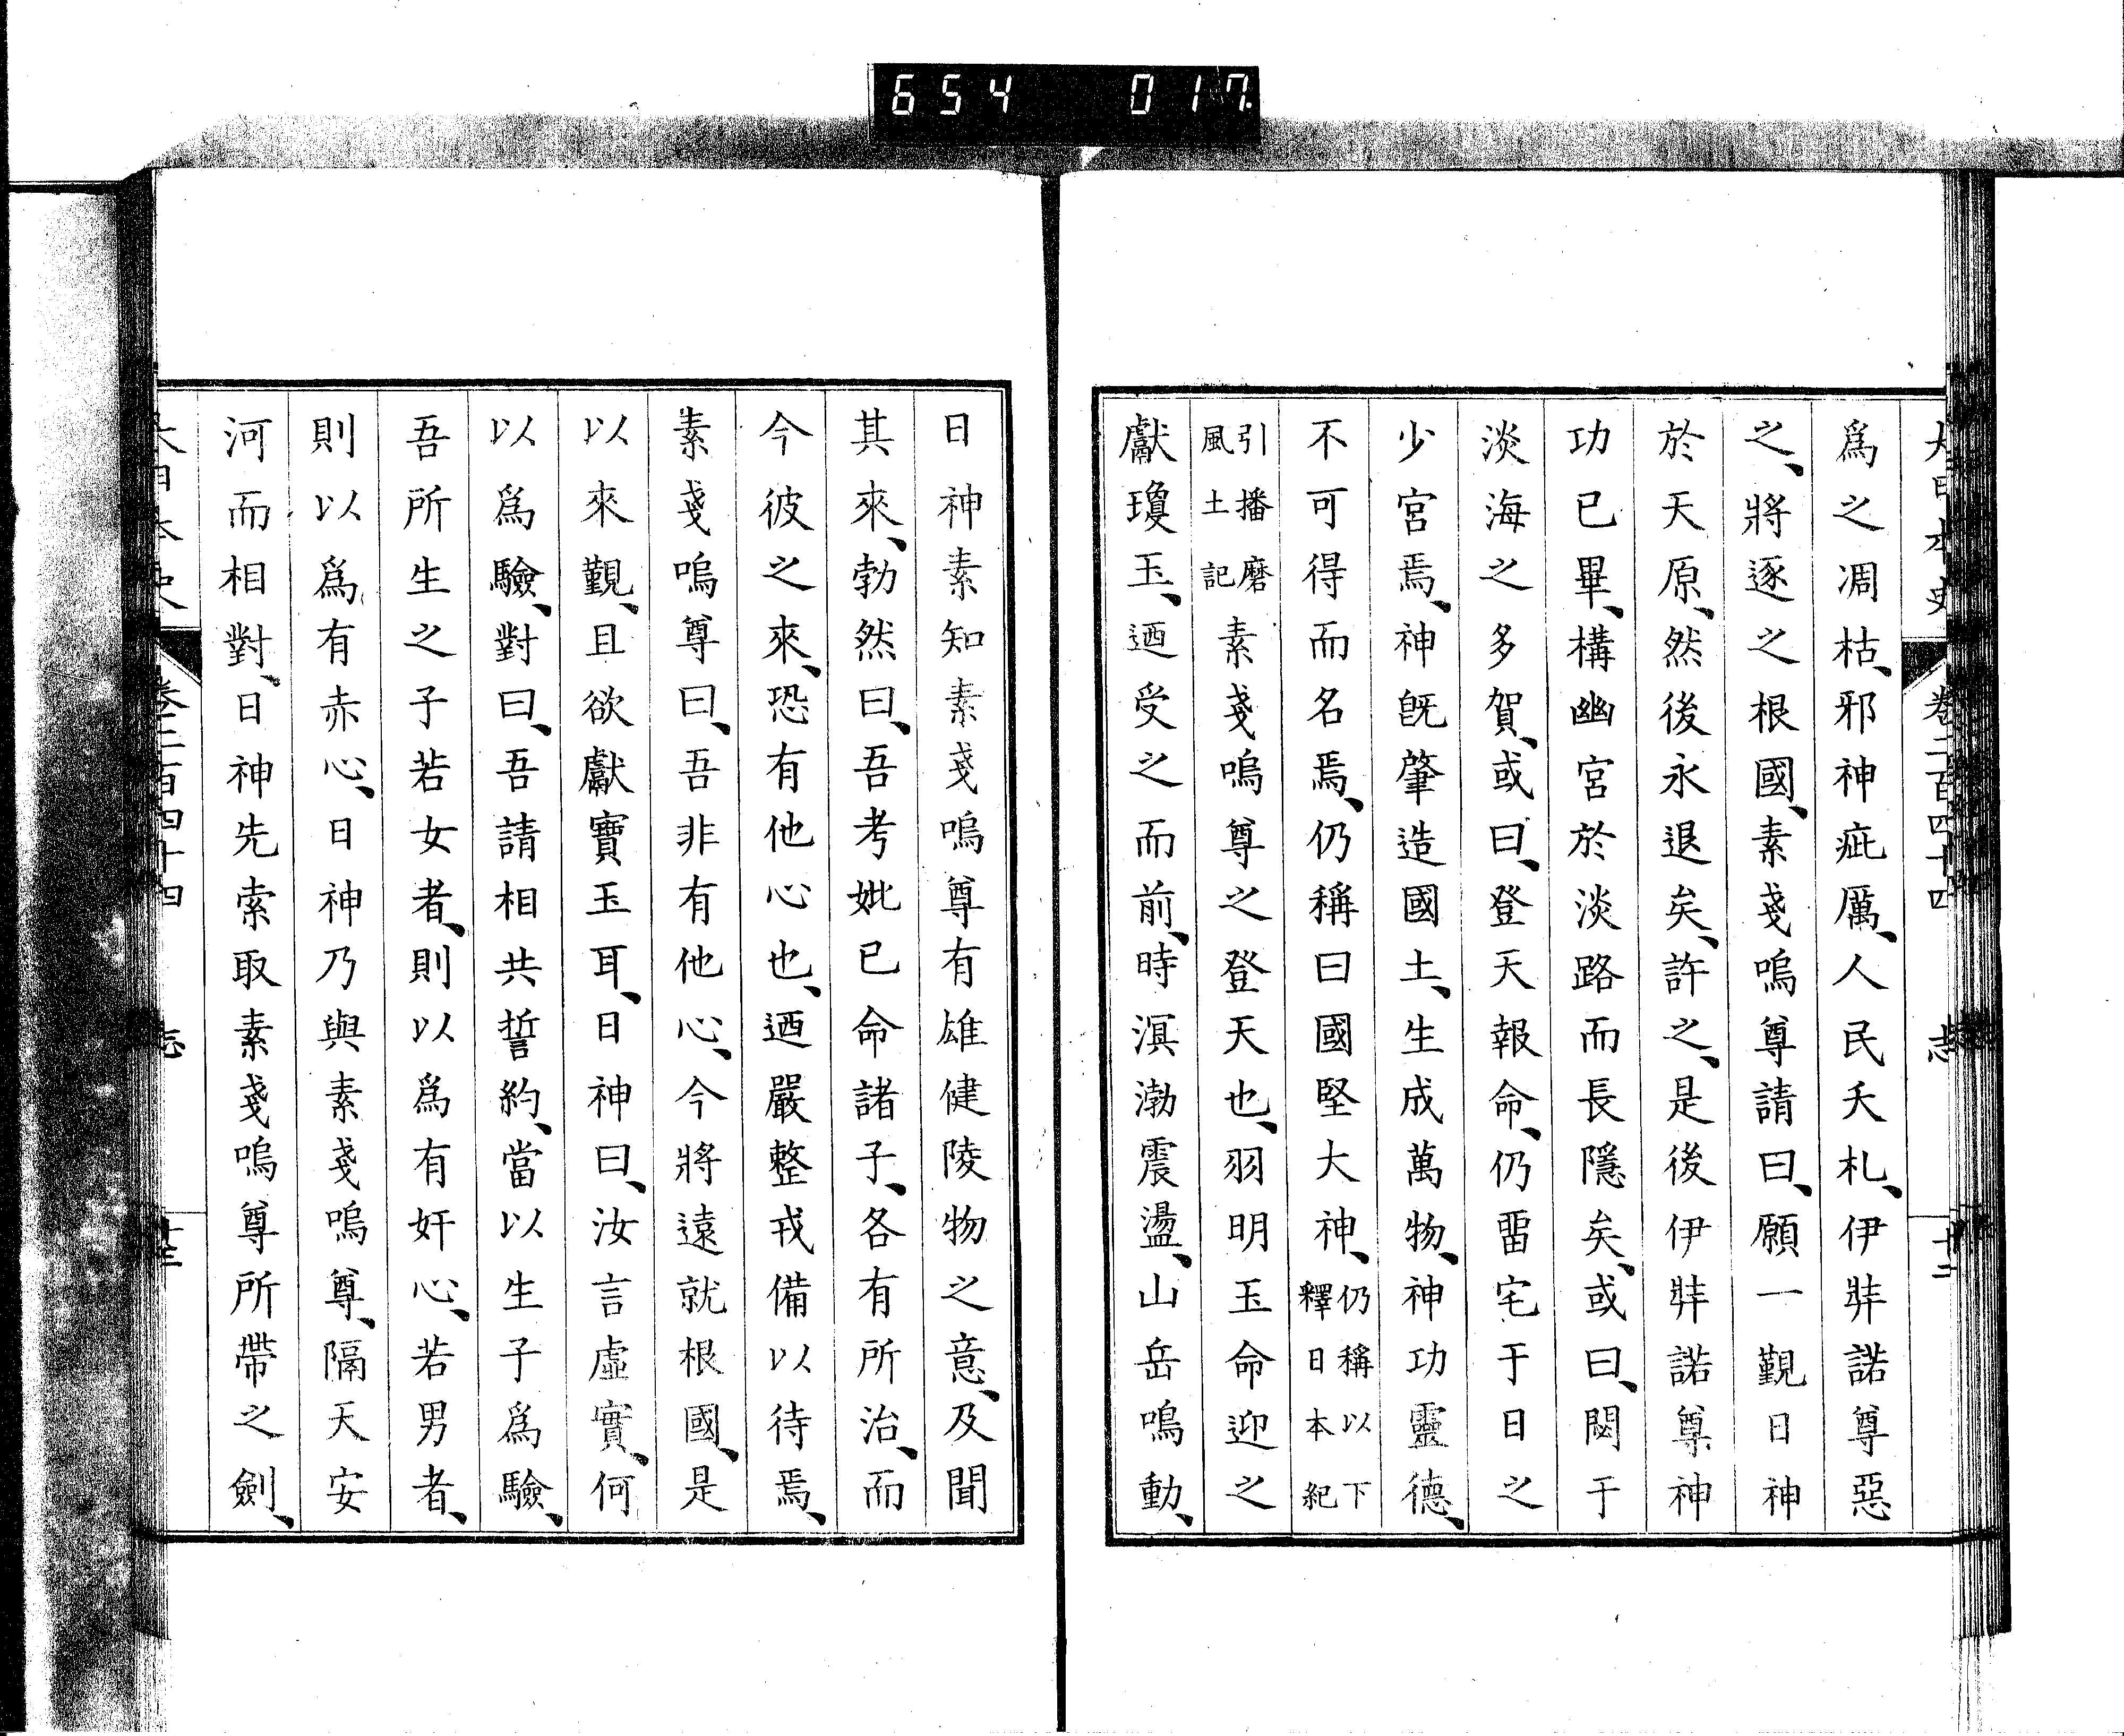 654 017
大日本史 卷二百四十四 志 十二
爲之凋枯、邪神疵厲、人民夭札、伊弉諾尊惡
之、將逐之根國、素戔嗚尊請曰、願一覲日神
於天原、然後永退矣、許之、是後伊弉諾尊神
功已畢、構幽宮於淡路而長隱矣、或曰、閟于
淡海之多賀、或曰、登天報命、仍畱宅于日之
少宮焉、神既肇造國土、生成萬物、神功靈德、
不可得而名焉、仍稱曰國堅大神、仍稱以下釋日本紀
引播磨風土記素戔嗚尊之登天也、羽明玉命迎之
獻瓊玉、迺受之而前、時溟渤震盪、山岳鳴動、
日神素知素戔嗚尊有雄健陵物之意、及聞
其來、勃然曰、吾考妣已命諸子、各有所治、而
今彼之來、恐有他心也、迺嚴整戎備以待焉、
素戔嗚尊曰、吾非有他心、今將遠就根國、是
以來覲、且欲獻寶玉耳、日神曰、汝言虛實、何
以爲驗、對曰、吾請相共誓約、當以生子爲驗、
吾所生之子若女者、則以爲有奸心、若男者、
則以爲有赤心、日神乃與素戔嗚尊、隔天安
河而相對、日神先索取素戔嗚尊所帶之劍、
大日本史 卷二百四十四 志